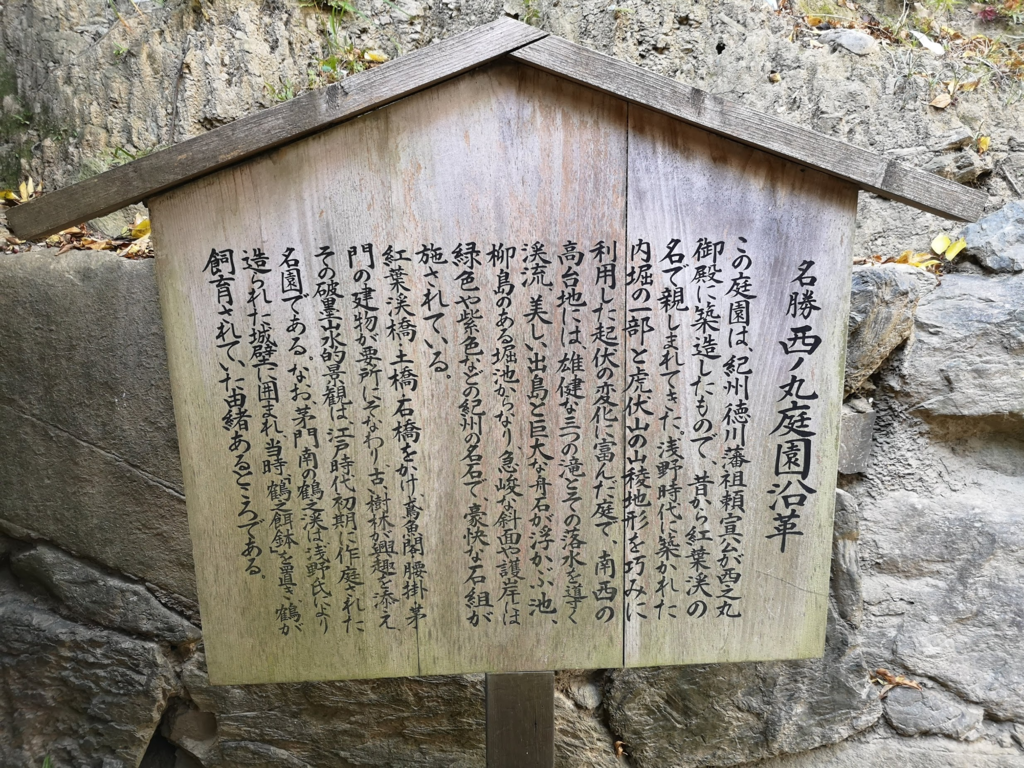 名勝 西ノ丸庭園沿革
この庭園は、紀州徳川藩祖頼宣公が西之丸
御殿に築造したもので、昔から紅葉渓の
名で親しまれてきた。浅野時代に築かれた
内堀の一部と虎伏山の山稜地形を巧みに
利用した起伏の変化に富んだ庭で、南西の
高台地には、雄健な三つの滝とその落水を導く
渓流、美しい出島と巨大な舟石が浮かぶ池、
柳島のある堀池からなり、急峻な斜面や護岸には
緑色や紫色などの紀州の名石で、豪快な石組が
施されている。
紅葉渓橋、土橋、石橋をかけ、鳶魚閣、腰掛、茅
門の建物が要所にそなわり、古樹林が興趣を添え、
その破墨山水的景観は江戸時代初期に作庭された
名園である。なお、茅門南の鶴之渓は浅野氏により
造られた城壁に囲まれ、当時「鶴之餌鉢」を置き、鶴が
飼育されていた由緒あるところである。